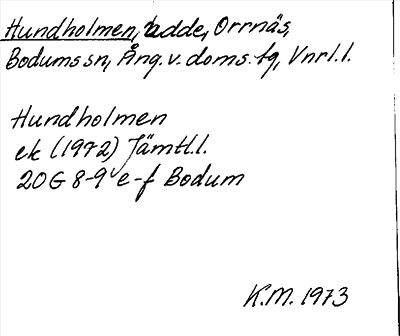 Hundholmen, udde, Orrnäs,
Bodums sn, Ång. v. doms. fg, Vnrl. l.
Hundholmen
ek (1972) Jämtl. l.
20G 8-9 e-f Bodum
K.M. 1973